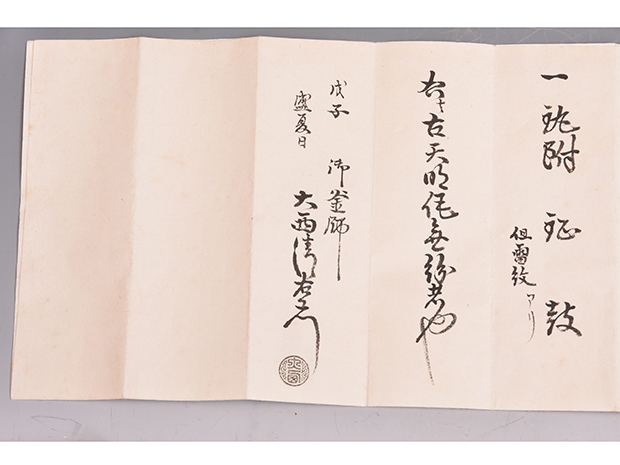 一 附 鉦鼓
但雷紋アリ
右ハ古天明作無紛者也
戊子 御釜師
盛夏日 大西清右衛門